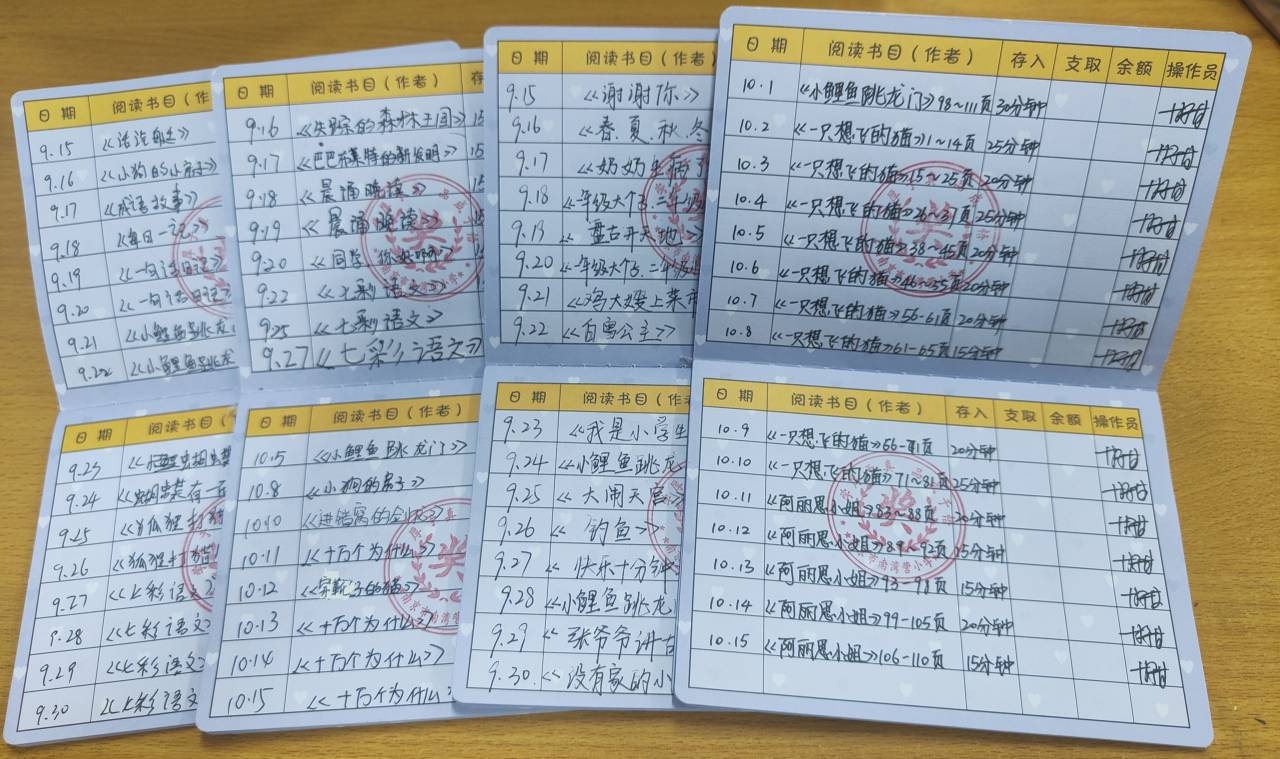 日 期 阅读书目(作
9.15 《
9.16 《小狗的小房子》
9.17 《成语故事》
9.18 《每日一记》
9.19 《一句话日记》
9.20 《一句话日记》
9.21 《小鲤鱼跳龙
9.22 《小鲤鱼跳龙
日 期 阅读书目
9.23
9.24
9.25
9.26 《狐狸打猎
9.27 《七彩语文
9.28 《七彩语文》
9.29 《七彩语文》
9.30 《七彩语文
日 期 阅读书目(作者) 存
9.16 《失踪的森林王国》 15
9.17 《巴巴布莱特的新发明》 15
9.18 《晨诵晚读》 15
9.19 《晨诵晚读》
9.20 《同学 你好啊》
9.22 《七彩语文》
9.25 《七彩语文》
9.27 《七彩语文》
日 期 阅读书目(作者)
10.5 《小鲤鱼跳龙门》
10.8 《小狗的房子》
10.10
10.11 《十万个为什么》
10.12
10.13 《十万个为什么》
10.14 《十万个为什么》
10.15 《十万个为什么》
日 期 阅读书目(作者
9.15 《谢谢你》
9.16 《春.夏.秋.冬
9.17 《奶奶生病了
9.18 一年级大个子二年级
9.19 《盘古开天地》
9.20 一年级大个子二年级
9.21 《鸡大嫂上菜市
9.22 《白雪公主》
日 期 阅读书目(作者
9.23 《我是小学生
9.24 《小鲤鱼跳龙
9.25 《大闹天宫》
9.26 《钓鱼》
9.27 快乐十分钟
9.28 《小鲤鱼跳龙
9.29 《张爷爷讲古
9.30. 《没有家的小
日 期 阅读书目(作者) 存入 支取 余额 操作员
10.1 《小鲤鱼跳龙门》98~111页 30分钟
10.2 《一只想飞的猫》1~14页 25分钟
10.3 《一只想飞的猫》15~25页 20分钟
10.4 《一只想飞的猫》26~37页 25分钟
10.5 《一只想飞的猫》38~45页 20分钟
10.6 《一只想飞的猫》46~55页 20分钟
10.7 《一只想飞的猫》56-61页 20分钟
10.8 《一只想飞的猫》61-65页 15分钟
日 期 阅读书目(作者) 存入 支取 余额 操作员
10.9 《一只想飞的猫》 20分钟
10.10 《一只想飞的猫》71~81页 25分钟
10.11 《阿丽思小姐》83~88页 20分钟
10.12 《阿丽思小姐》89~92页 15分钟
10.13 《阿丽思小姐》93-98页 15分钟
10.14 《阿丽思小姐》99-105页 20分钟
10.15 《阿丽思小姐》106-110页 15分钟
奖